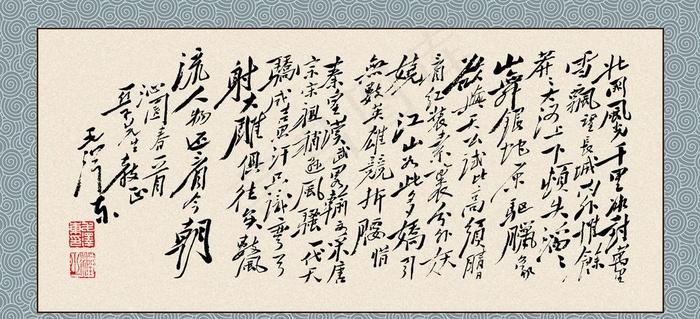 北國風光千里冰封萬里
雪飄望長城内外惟餘
莽莽大河上下頓失滔滔
山舞銀蛇原驅臘象
欲與天公試比高須晴
日看紅裝素裹分外妖
嬈江山如此多嬌引
無數英雄競折腰惜
秦皇漢武略輸文采唐
宗宋祖稍遜風騷一代天
驕成吉思汗只識彎弓
射大雕俱往矣數風
流人物還看今朝
沁園春一首
亞子先生教正
毛澤東